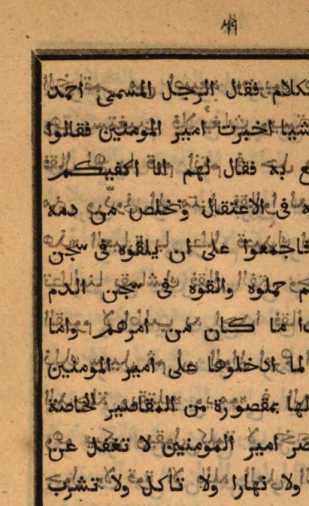 ٨٩
فقال الرجل المسمى احمد
شيا اخبرت امير المومنين فقالوا
به فقال لهم انا اكفيكم
فى الاعتقال وتخلص من دمه
فاجمعوا على ان يلقوه فى سجن
حملوه والقوه فى سجن الدم
ما كان من امرهم واما
لما ادخلوها على امير المومنين
لها بمقصورة من المقاصير الخاصة
امير المومنين لا تغفل عن
ولا نهارا ولا تاكل ولا تشرب